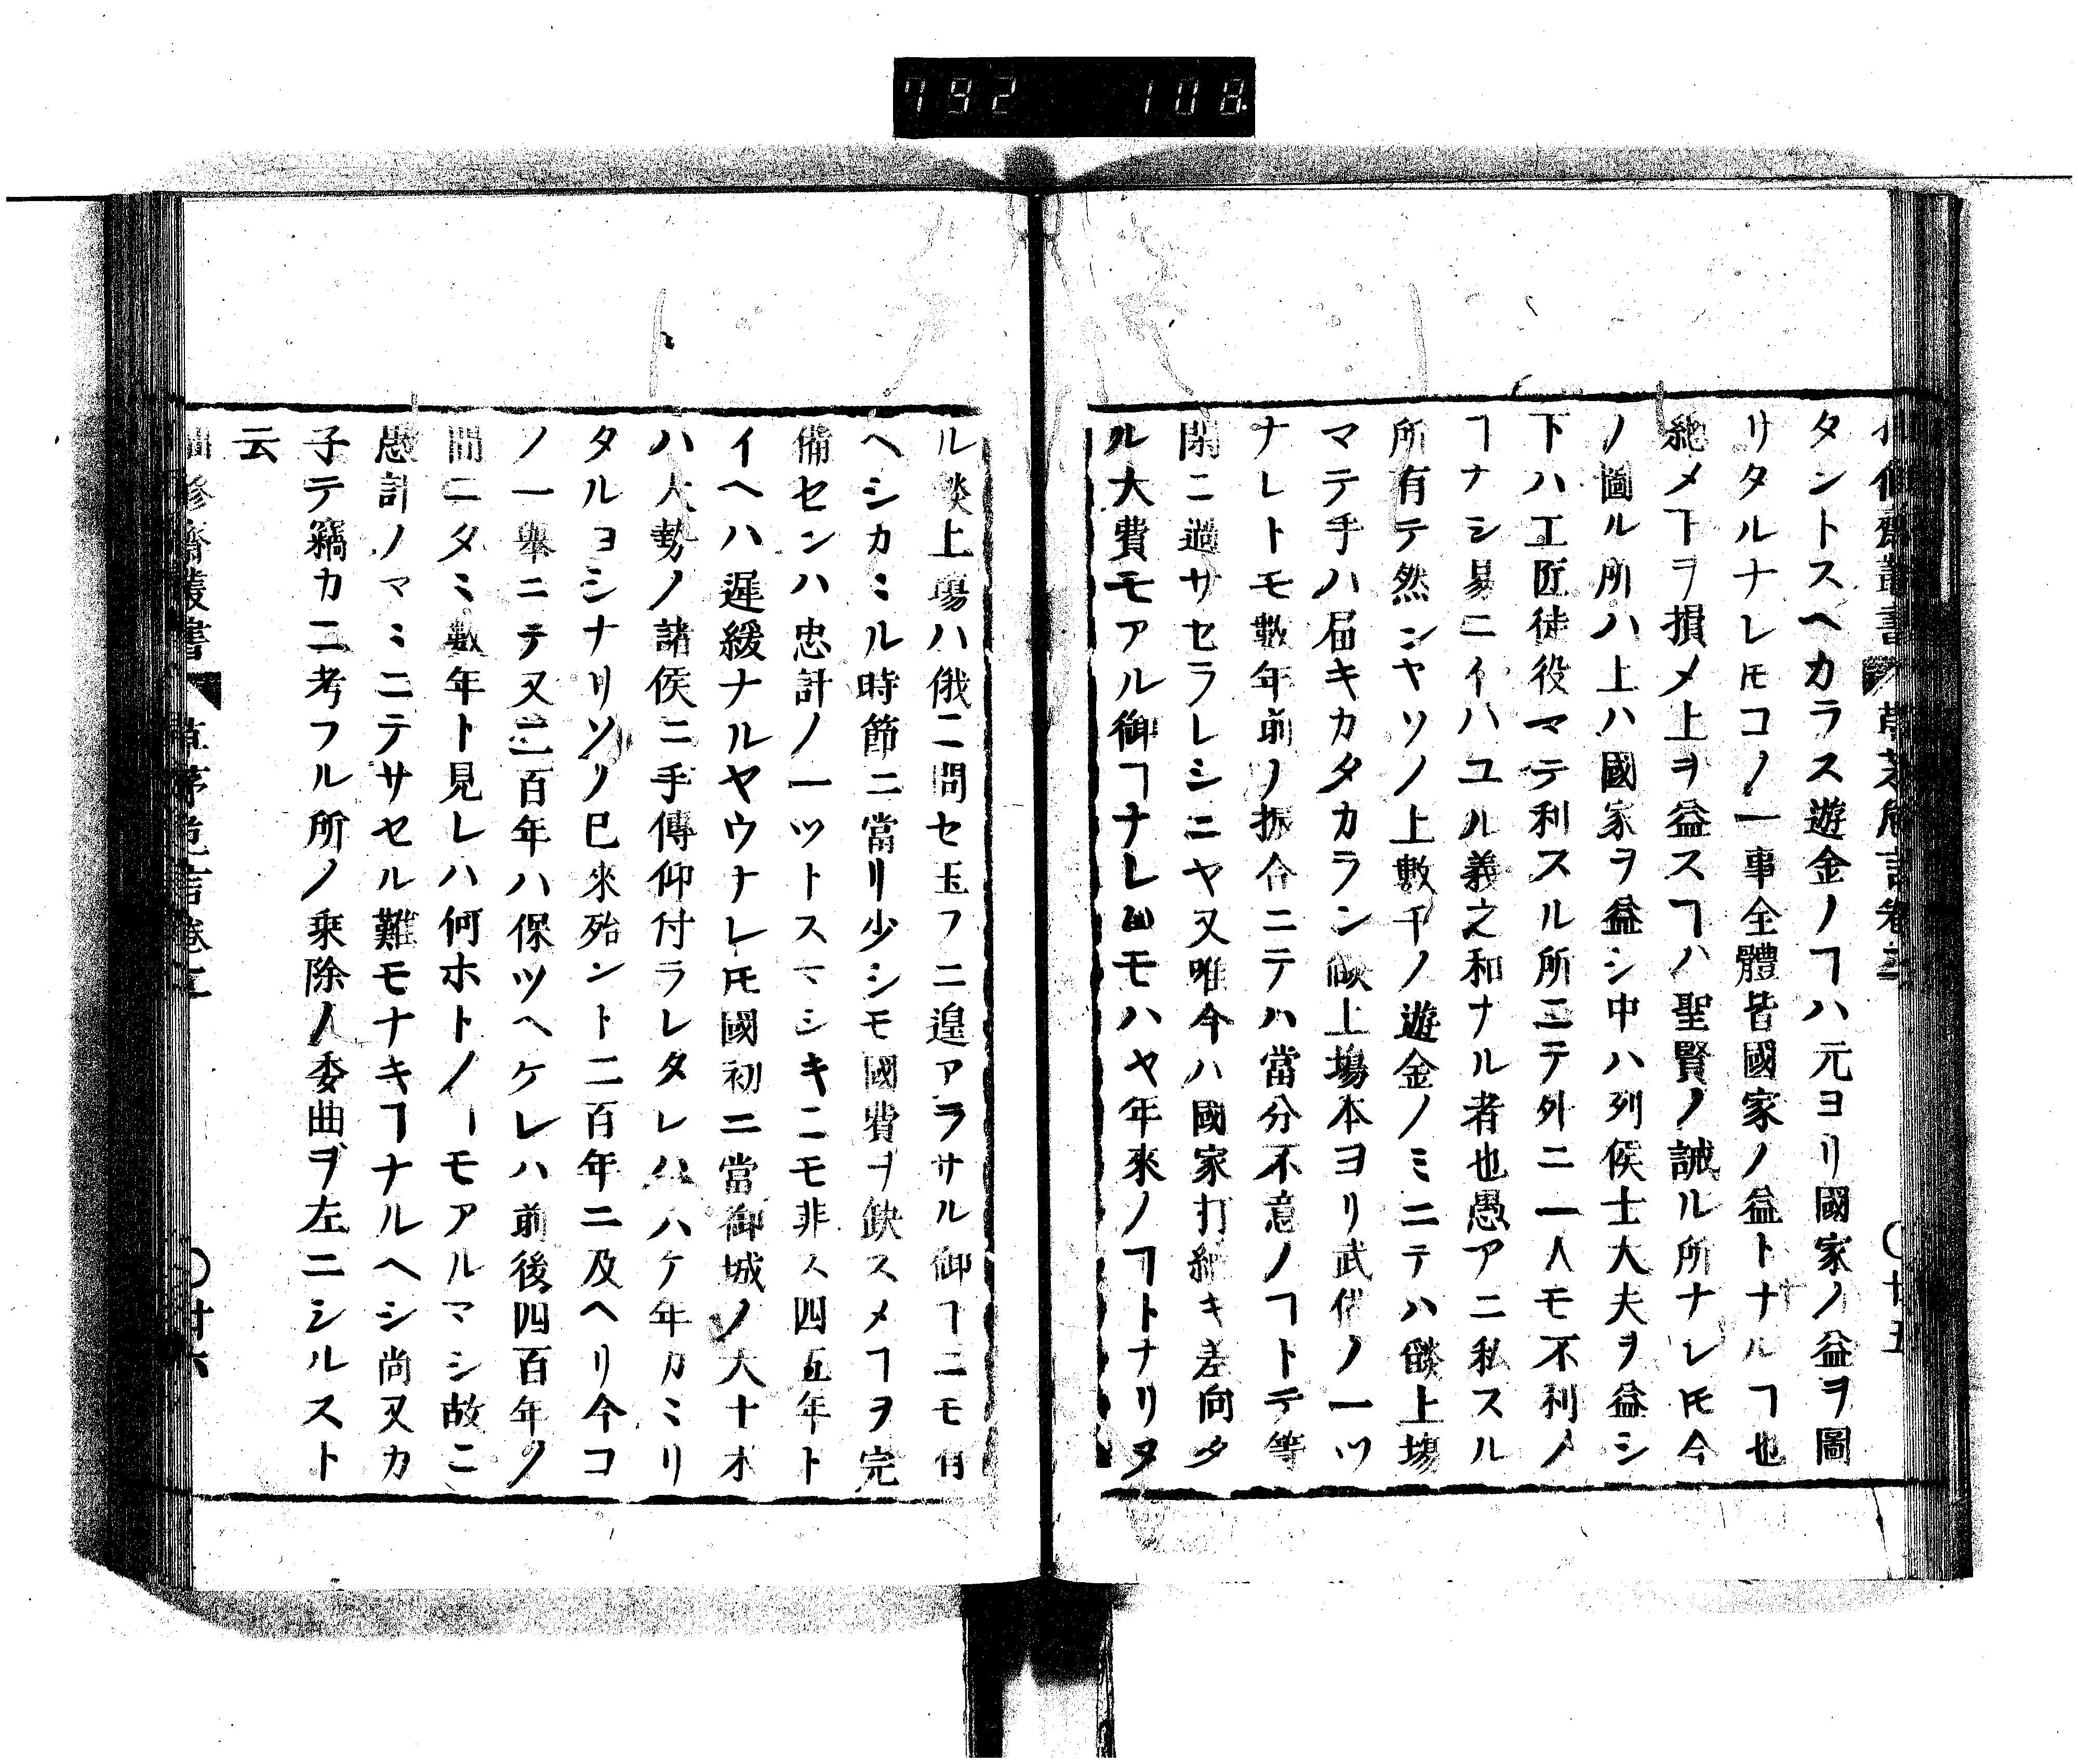 792 108
タントスヘカラス遊金ノヿハ元ヨリ國家ノ益ヲ圖
リタルナレ𪜈コノ一事全體皆國家ノ益トナルヿ也
總メ下ヲ損メ上ヲ益スヿハ聖賢ノ誡ル所ナレ𪜈今
ノ圖ル所ハ上ハ國家ヲ益シ中ハ列侯士大夫ヲ益シ
下ハ工匠徒役マテ利スル所ニテ外ニ一人モ不利ノ
ヿナシ易ニイハユル義之和ナル者也愚アニ私スル
所有テ然ンヤソノ上數千ノ遊金ノミニテハ燄上場
マテ手ハ届キカタカラン燄上場本ヨリ武備ノ一ツ
ナレトモ數年前ノ振合ニテハ當分不意ノヿトテ等
閑ニ過サセラレシニヤ又唯今ハ國家打續キ差向タ
ル大費モアル御ヿナレ𪜈モハヤ年來ノヿトナリタ
ル燄上場ハ俄ニ問セ玉フニ遑アラサル御ヿニモ有
ヘシカミル時節ニ當リ少シモ國費ヲ缺スメヿヲ完
備センハ忠計ノ一ツトスマシキニモ非ス四五年ト
イヘハ遲緩ナルヤウナレ𪜈國初ニ當御城ノ大十才
ハ大勢ノ諸侯ニ手傳仰付ラレタレハハケ年カミリ
タルヨシナリソノ已來殆ント二百年ニ及ヘリ今コ
ノ一舉ニテ又二百年ハ保ツヘケレハ前後四百年ノ
間ニタミ數年ト見レハ何ホトノーモアルマシ故ニ
愚計ノマミニテサセル難モナキヿナルヘシ尚又カ
子テ竊カニ考フル所ノ乘除ノ委曲ヲ左ニシルスト
云